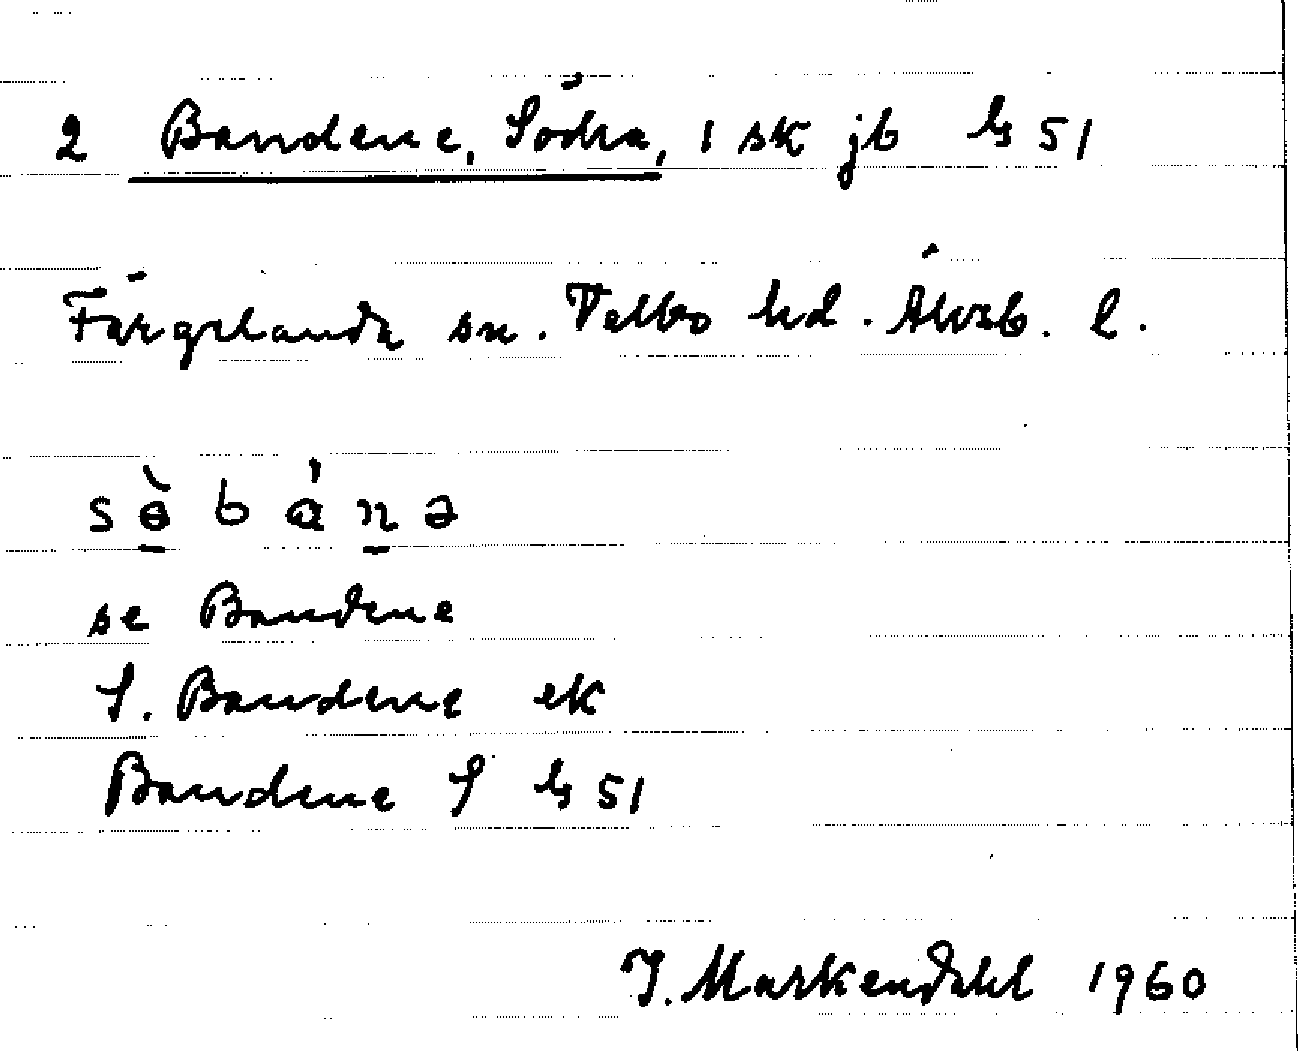 2 Bandene, Södra, 1 sk jb ls 51
Färgelanda sn. Valbo hd. Älvsb. l.
sə̀ bánə
se Bandene
S. Bandene ek
Bandene S ls 51
I. Markendahl 1960